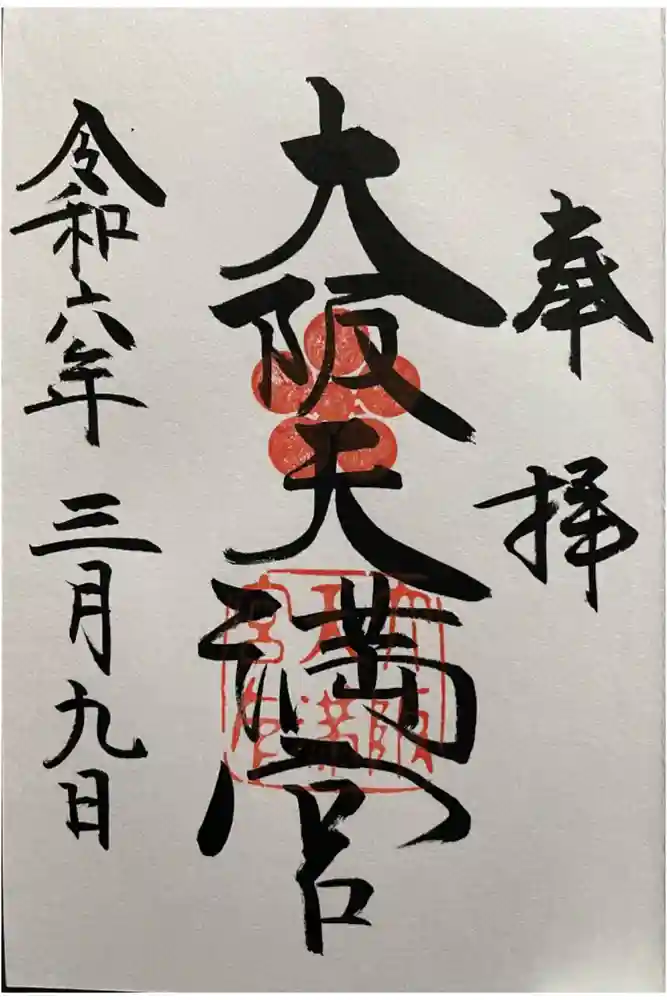 奉拝
大阪天満宮
令和六年 三月九日